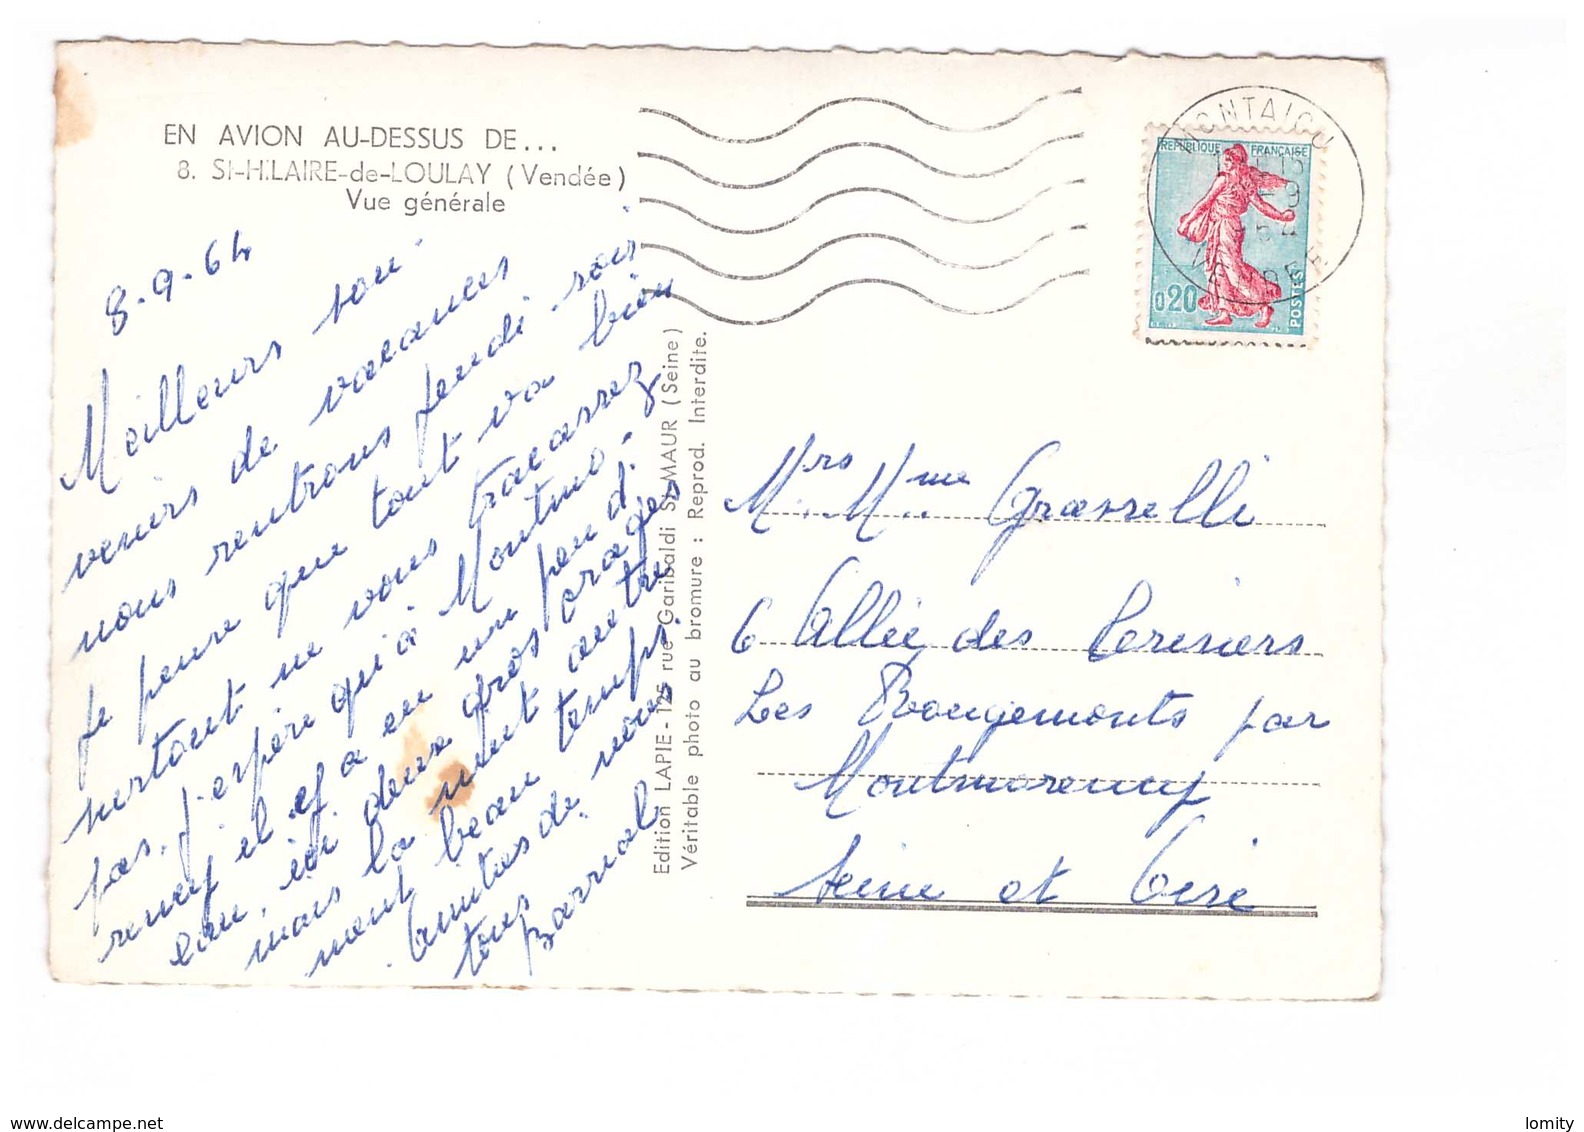 EN AVION AU-DESSUS DE...
8. St-HILAIRE-de-LOULAY (Vendée)
Vue générale
8-9-64
Meilleurs sou-
venirs de vacances
nous rentrons jeudi soir
Je pense que tout va bien
surtout ne vous tracassez
pas, j'espère qu'à Montmo-
rency il y a eu un peu d'
eau, ici deux gros orages
mais la
ment beau temps.
Amitiés de nous
tous
Barrial
Edition LAPIE - 125 rue Garibaldi St-MAUR (Seine)
Véritable photo au bromure : Reprod. Interdite.
MONTAIGU
VENDEE
REPUBLIQUE FRANÇAISE
0,20
POSTES
Mrs. Mme Grasselli
6 Allée des Cerisiers
Les Rougemonts par
Montmorency
Seine et Oise
www.delcampe.net
lomity